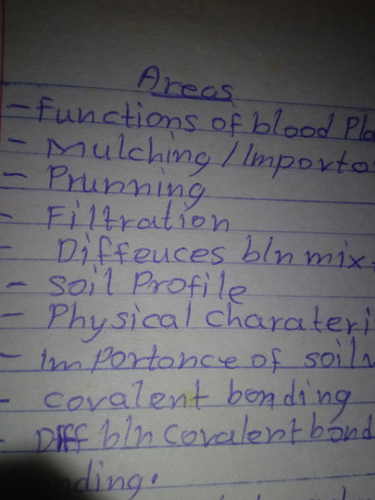 Areas
- Functions of blood Pla
- Mulching / Importa
- Prunning
- Filtration
- Diffeuces b/n mix
- Soil Profile
- Physical charateri
- importance of soil
- covalent bonding
- Diff b/n covalent bond
nding.